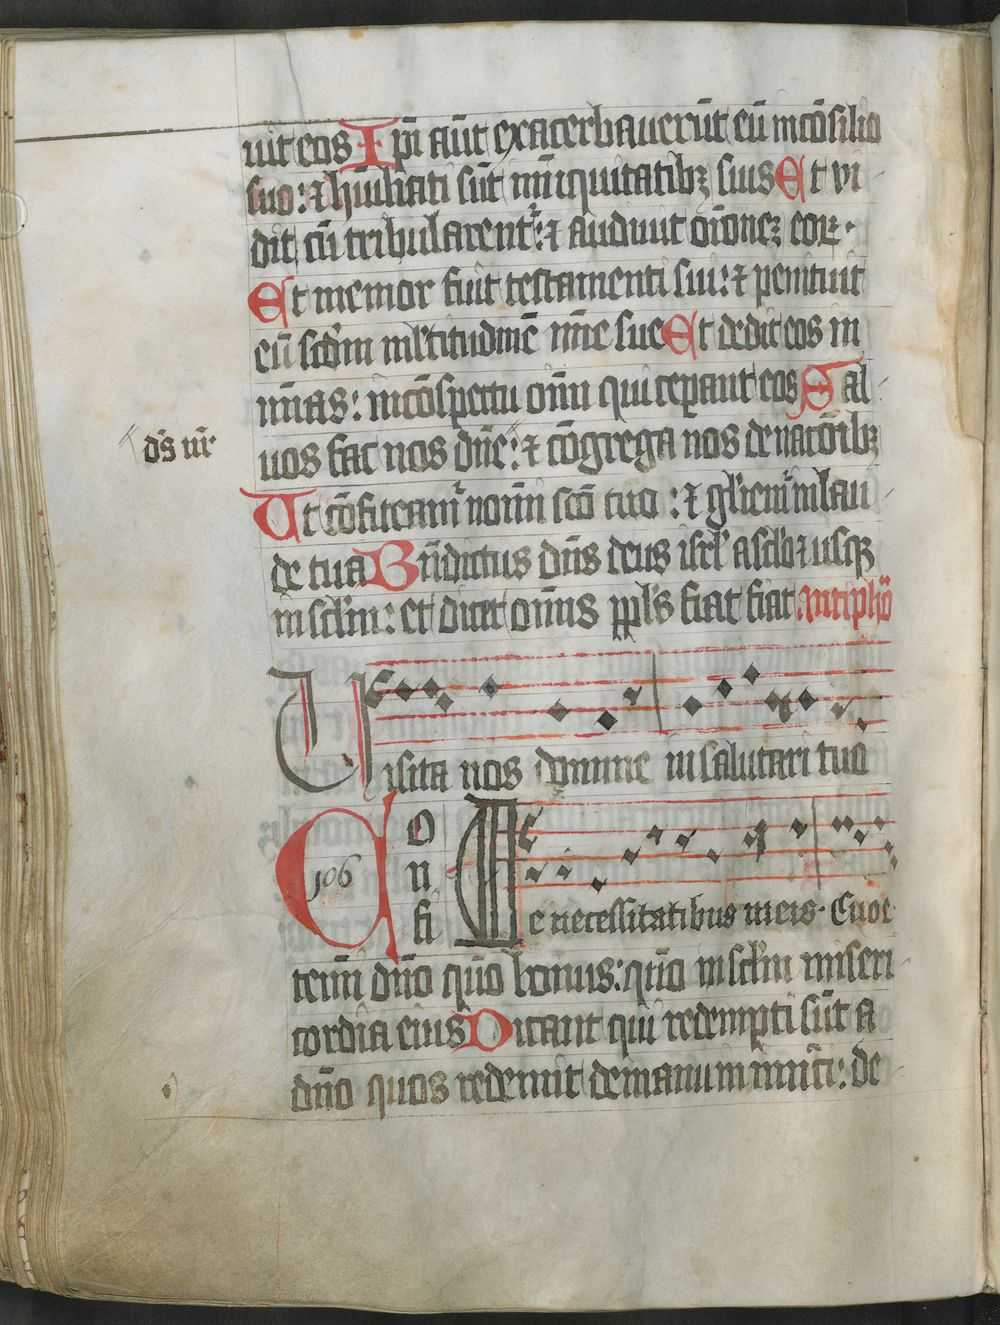 uit eos Ipi aūt exacerbauerūt eū in cōsilio
suo: ⁊ hūiliati sūt in īniquitatibꝫ suis Et vi
dit cū tribularent᷑: ⁊ audiuit orōneꝫ eoꝝ.
Et memor fuit testamenti sui: ⁊ penituit
eū scd̄m ml̄titudinē mīe sue Et dedit eos in
mīas: in cōspectu oīm qui ceperant eos Sal
ds nr̄
uos fac nos dn̄e: ⁊ cōgrega nos de natōibꝫ
Ut cōfiteam᷑ nomī scō tuo: ⁊ gl̄iem᷑ in lau
de tua Bn̄dictus dn̄s deus isrl̄ a sclō ⁊ usqꝫ
in scl̄m: et dicet omīs ppl̄s fiat fiat Antiphō
Visita nos domine in salutari tuo
Confi
106
De necessitatibus meis. Euoe
temī dn̄o qm̄ bonus: qm̄ in scl̄m miseri
cordia eius Dicant qui redempti sūt a
dn̄o quos redemit de manu inimici: de